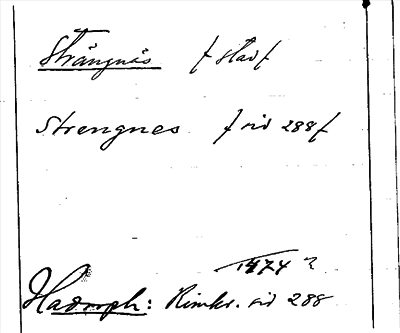 Strängnäs / stad /
Strengnes / sid 288 /
1474 ?
Hadorph: Rimkr. sid 288